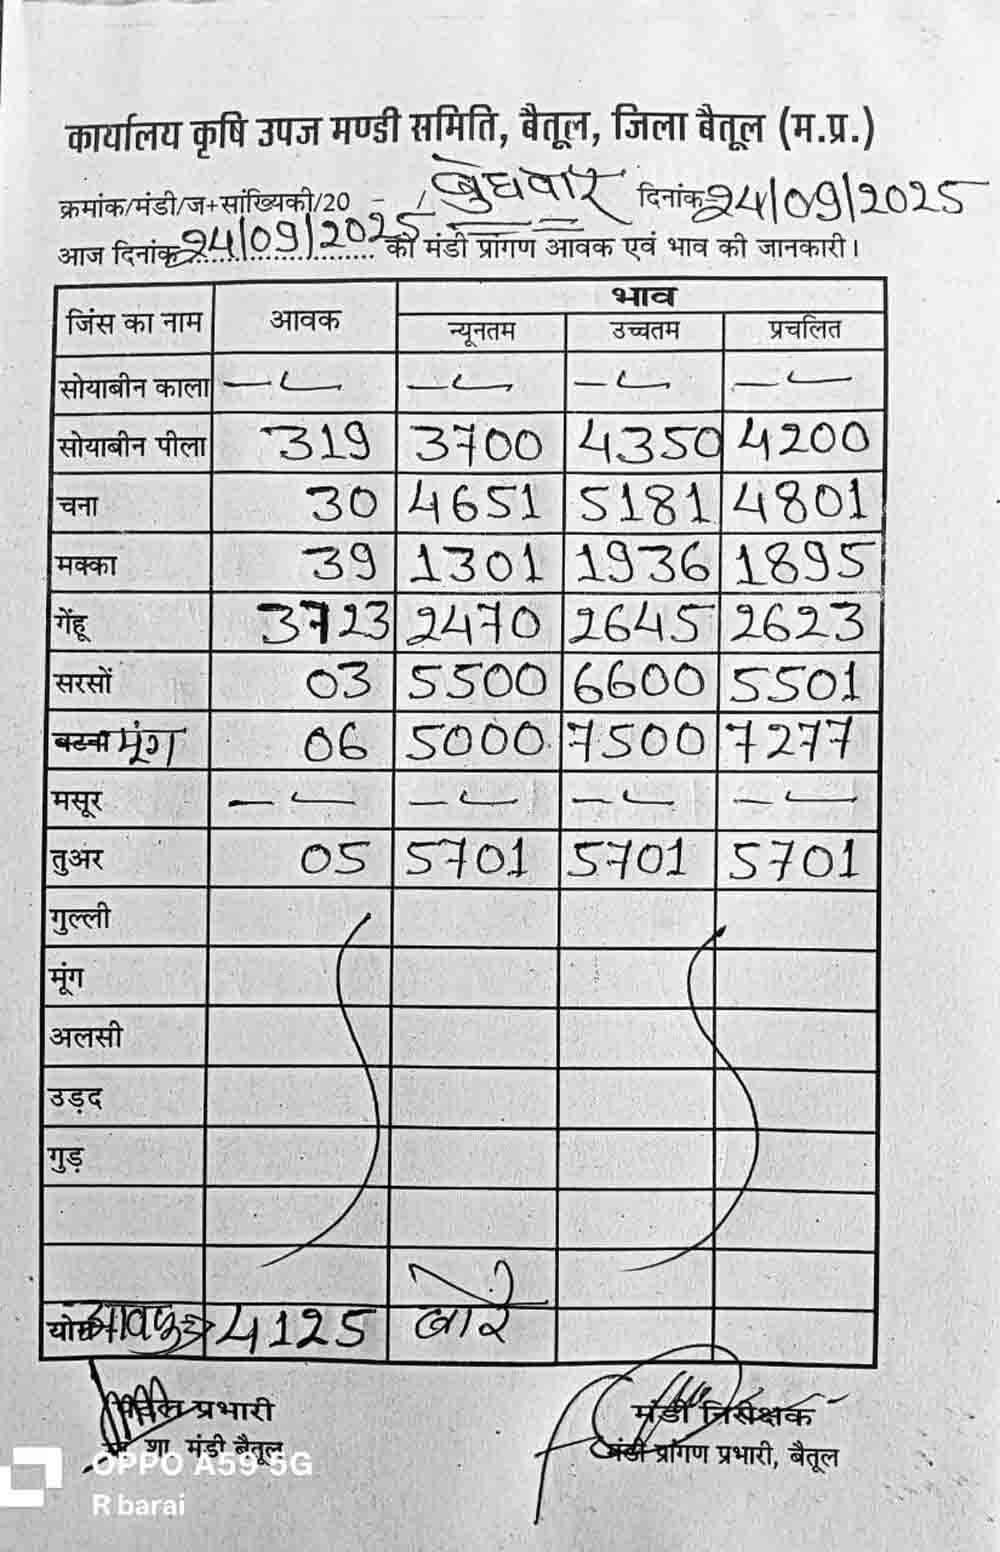 कार्यालय कृषि उपज मण्डी समिति, बैतूल, जिला बैतूल (म.प्र.)
क्रमांक/मंडी/ज+सांख्यिकी/20 - / बुधवार दिनांक 24/09/2025
आज दिनांक 24/09/2025 की मंडी प्रांगण आवक एवं भाव की जानकारी।
जिंस का नाम आवक भाव
न्यूनतम उच्चतम प्रचलित
सोयाबीन काला — — — —
सोयाबीन पीला 319 3700 4350 4200
चना 30 4651 5181 4801
मक्का 39 1301 1936 1895
गेंहू 3723 2470 2645 2623
सरसों 03 5500 6600 5501
बटना मूंग 06 5000 7500 7277
मसूर — — — —
तुअर 05 5701 5701 5701
गुल्ली
मूंग
अलसी
उड़द
गुड़
आवक 4125 बोरे
प्रभारी मंडी निरीक्षक
शा. मंडी बैतूल मंडी प्रांगण प्रभारी, बैतूल
OPPO A59 5G
R barai